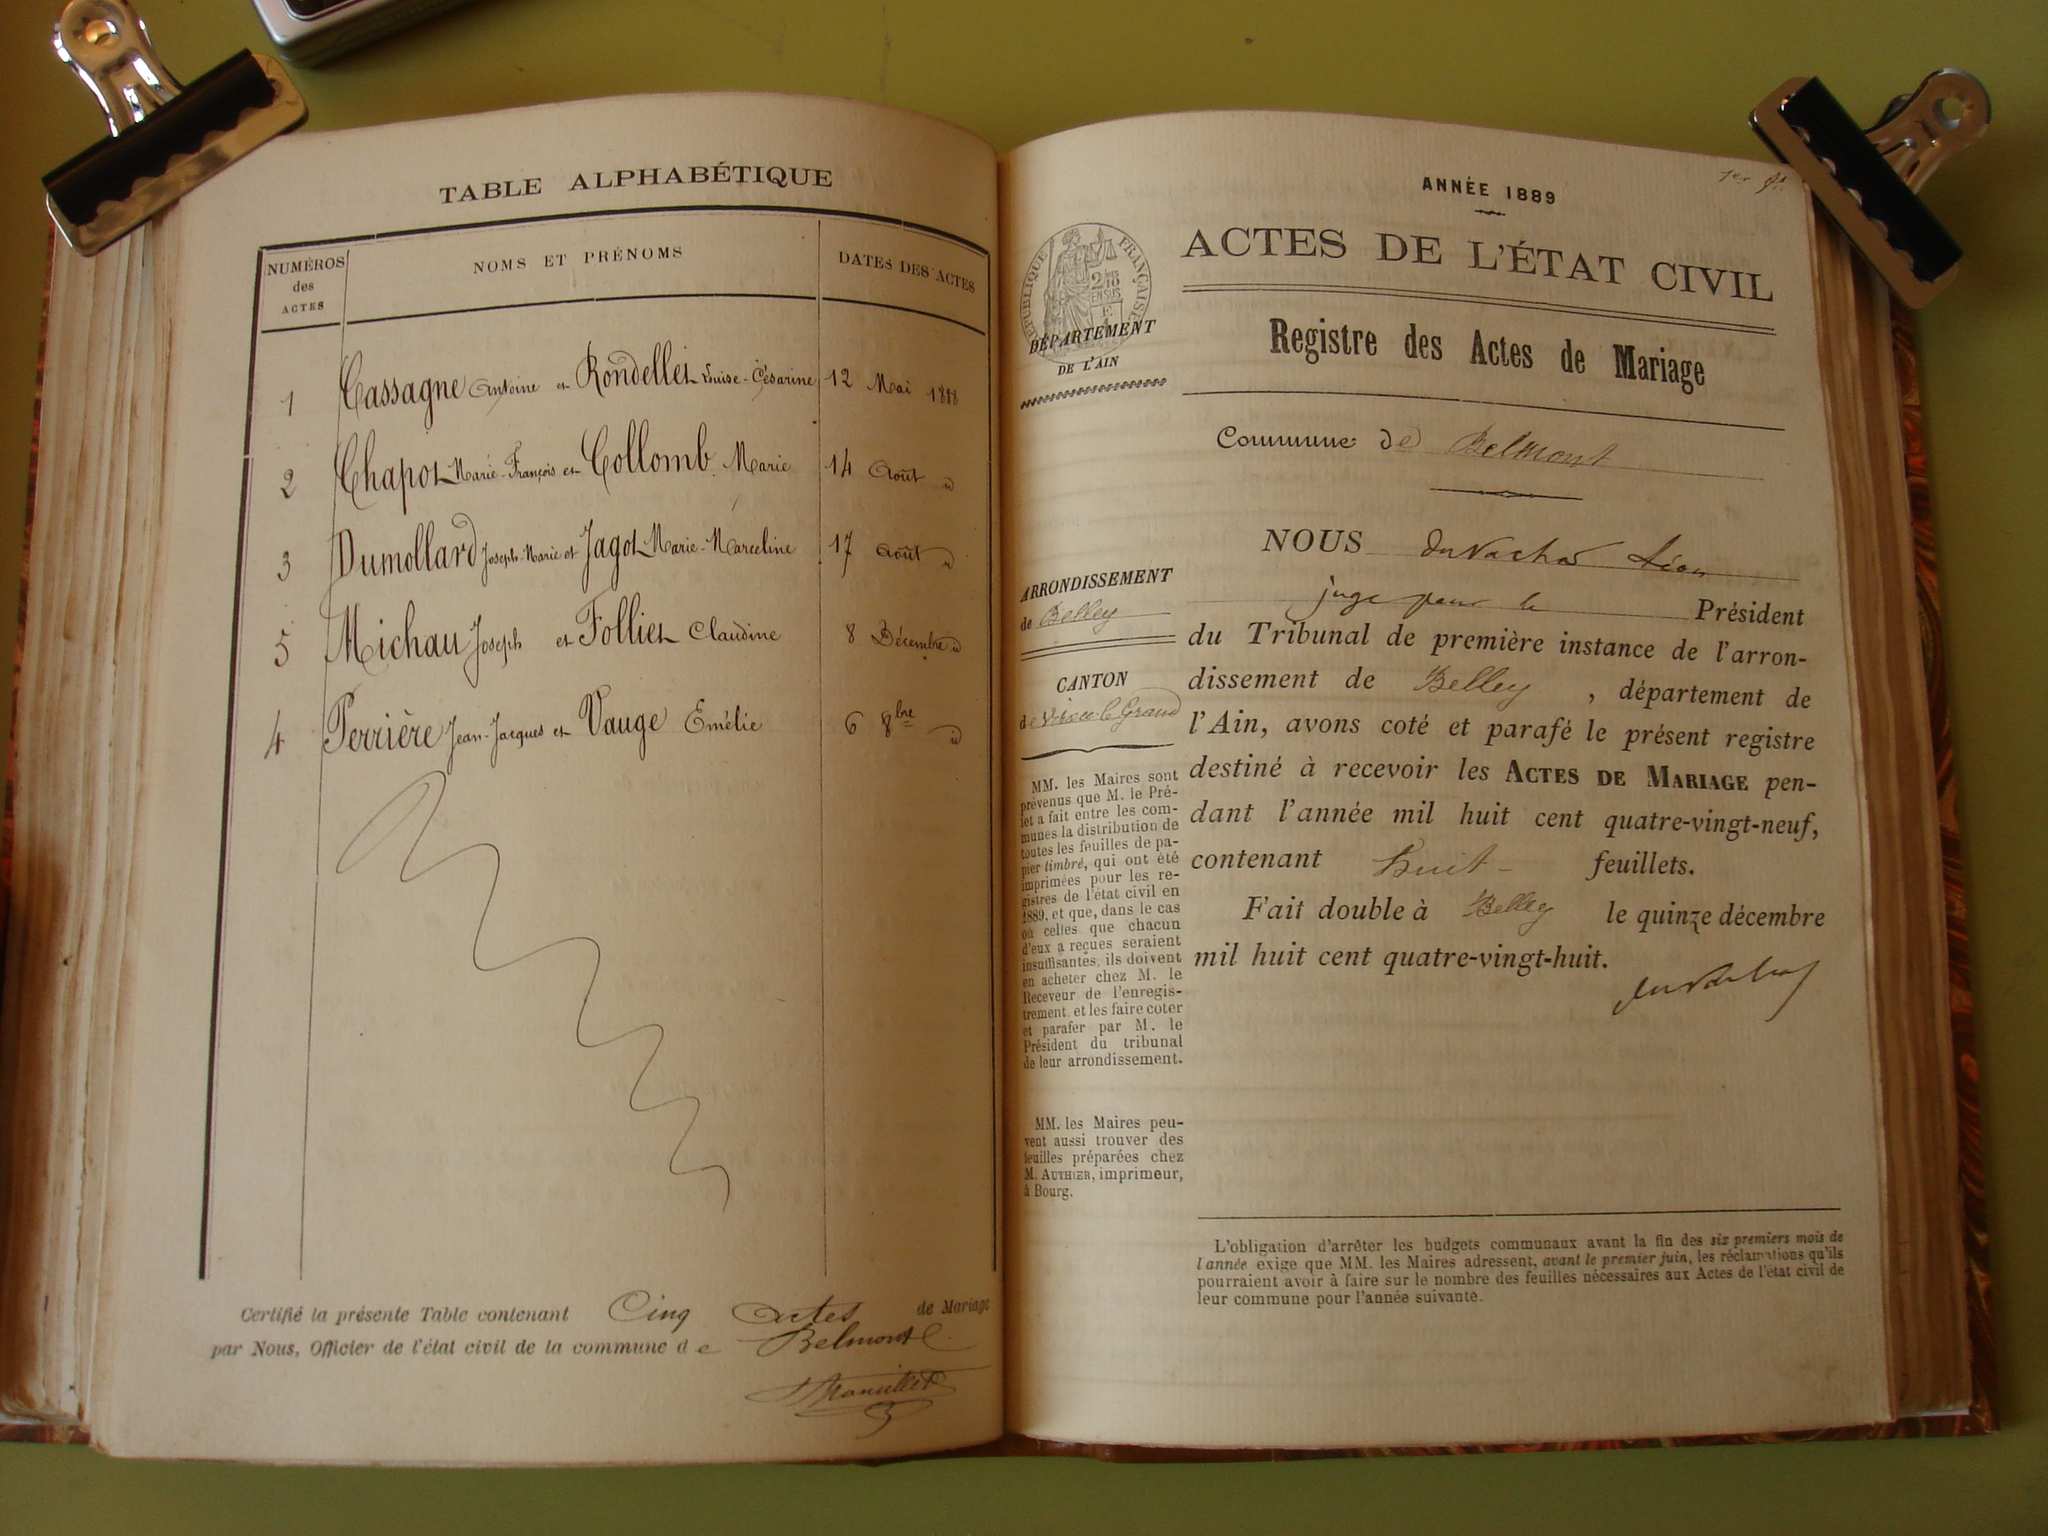 TABLE ALPHABÉTIQUE
NUMÉROS des ACTES
NOMS ET PRÉNOMS
DATES DES ACTES
1 Cassagne Antoine et Rondellet Louise-Césarine 12 Mai 1888
2 Chapot Marie-François et Collomb Marie 14 Août id
3 Dumollard Joseph-Marie et Jagot Marie-Marceline 17 Août id
5 Michau Joseph et Folliet Claudine 8 Décembre id
4 Perrière Jean-Jacques et Vauge Emélie 6 8bre id
Certifié la présente Table contenant Cinq Actes de Mariage
par Nous, Officier de l'état civil de la commune de Belmont
1er
ANNÉE 1889
ACTES DE L'ÉTAT CIVIL
RÉPUBLIQUE FRANÇAISE
2/10 EN SUS
DÉPARTEMENT
DE L'AIN
Registre des Actes de Mariage
Commune de Belmont
ARRONDISSEMENT
de Belley
CANTON
de Virieu-le-Grand
MM. les Maires sont
prévenus que M. le Pré-
fet a fait entre les com-
munes la distribution de
toutes les feuilles de pa-
pier timbré, qui ont été
imprimées pour les re-
gistres de l'état civil en
1889, et que, dans le cas
où celles que chacun
d'eux a reçues seraient
insuffisantes, ils doivent
en acheter chez M. le
Receveur de l'enregis-
trement, et les faire coter
et parafer par M. le
Président du tribunal
de leur arrondissement.
MM. les Maires peu-
vent aussi trouver des
feuilles préparées chez
M. AUTHIER, imprimeur,
à Bourg.
NOUS Léon
juge pour le Président
du Tribunal de première instance de l'arron-
dissement de Belley, département de
l'Ain, avons coté et parafé le présent registre
destiné à recevoir les ACTES DE MARIAGE pen-
dant l'année mil huit cent quatre-vingt-neuf,
contenant huit feuillets.
Fait double à Belley le quinze décembre
mil huit cent quatre-vingt-huit.
L'obligation d'arrêter les budgets communaux avant la fin des six premiers mois de
l'année exige que MM. les Maires adressent, avant le premier juin, les réclamations qu'ils
pourraient avoir à faire sur le nombre des feuilles nécessaires aux Actes de l'état civil de
leur commune pour l'année suivante.